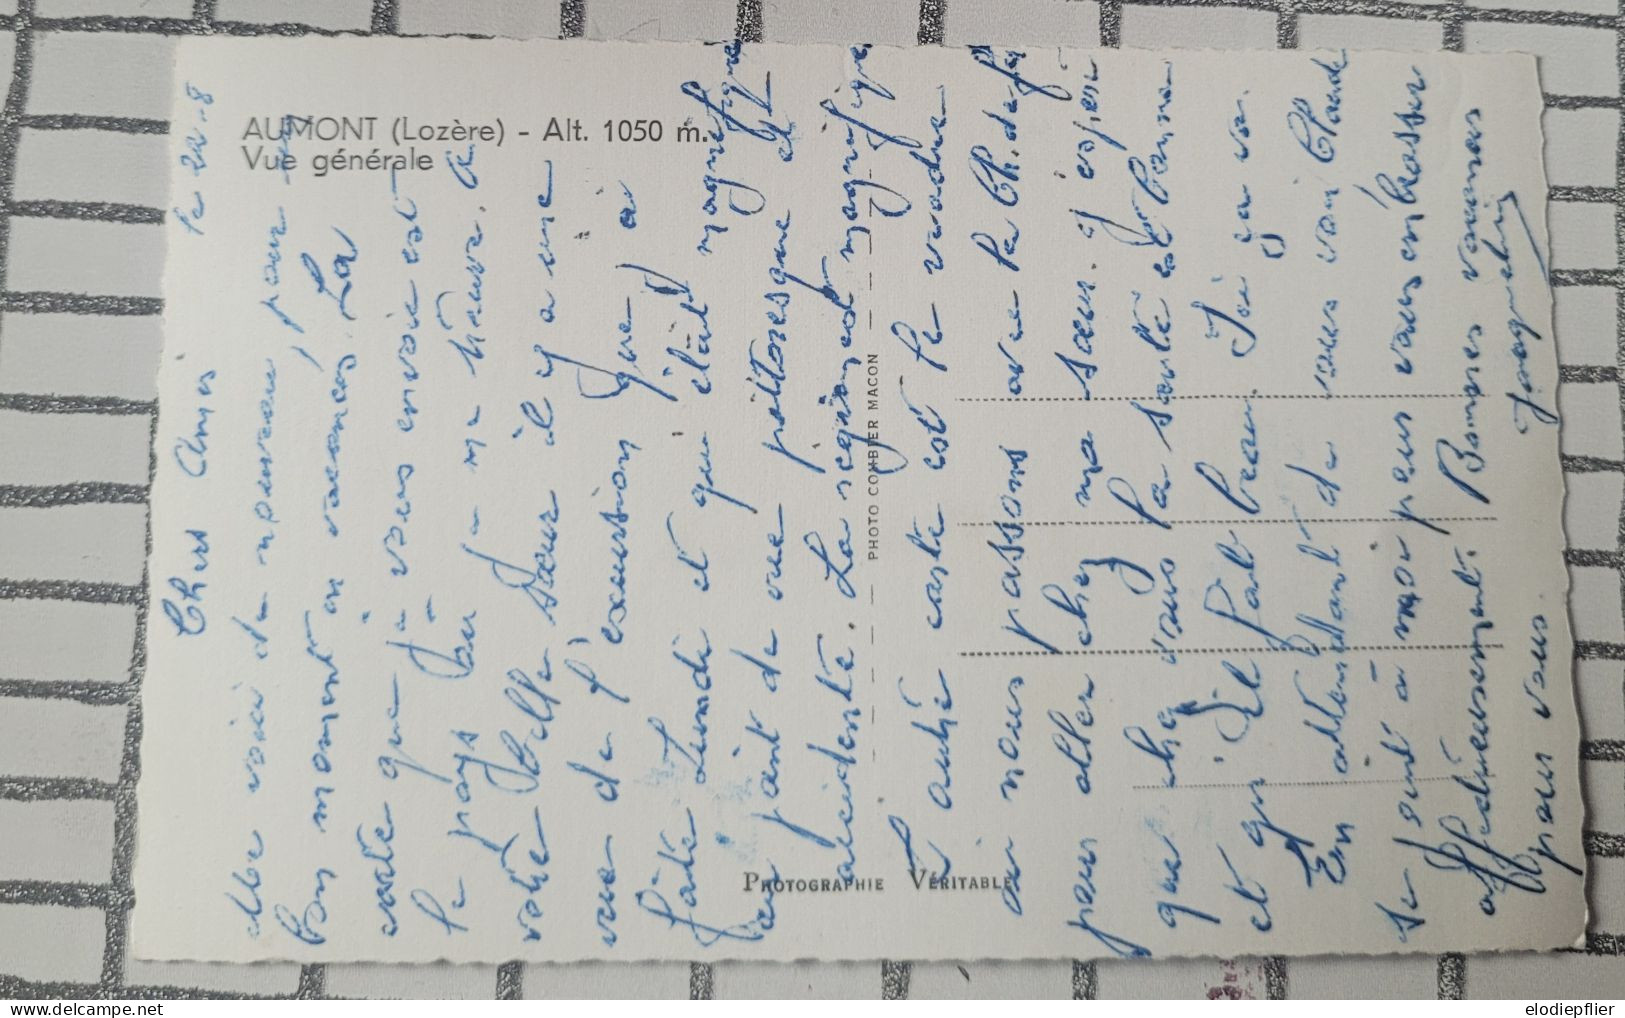 AUMONT (Lozère) - Alt. 1050 m.
Vue générale
PHOTO COMBIER MACON
PHOTOGRAPHIE VÉRITABLE
le 22.8
Chers Amis
Me voici de nouveau, pour
bon moment en vacances. La
carte que je vous envoie est
le pays
votre Belle Sœur il y a une
vue de l'excursion que j'ai
faite Lundi et qui était magnifique
au point de vue pittoresque et
accidenté. La région est magnifique
L'autre carte est le viaduc
où nous passons avec le Ch. de fer
pour aller chez ma sœur. J'espère
que chez vous la santé est bonne
et qu'il fait beau. Ici ça va.
En attendant de vous voir Claude
se joint à moi pour vous embrasser
affectueusement. Bonnes vacances
pour vous.
Jacqueline
elodiepflier